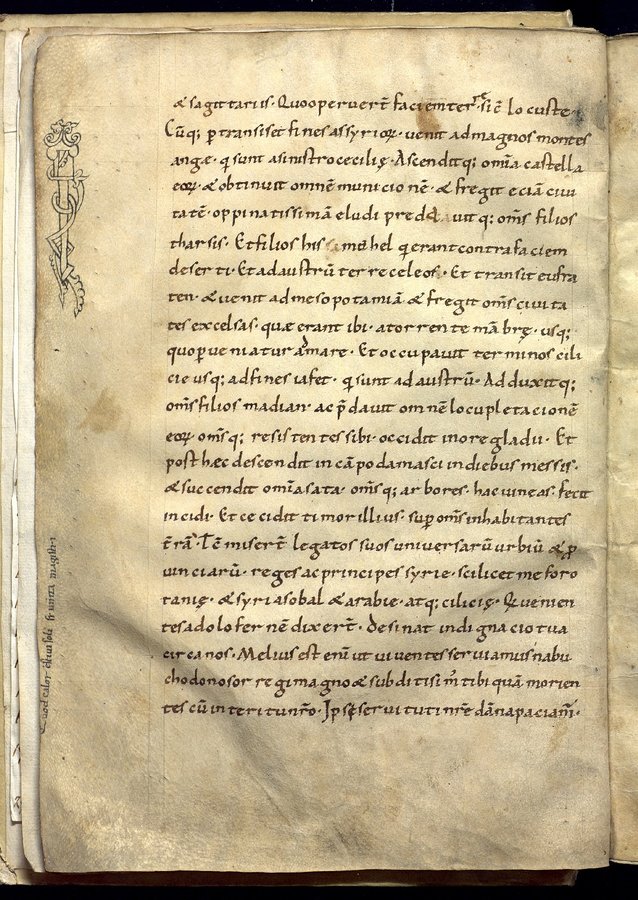 & sagittariis. Quooperuert̄ faciem terrę sic̄ locuste.
Cūq; ꝑtransisset fines assyrioꝝ. uenit ad magnos montes
angæ. q̇ sunt a sinistro cecilię. Ascenditq; om̄ia castella
eoꝝ. & obtinuit omnē municionē. & fregit eciā ciui
tatē. oppinatissimā eludi predauitq; om̄s filios
tharsis. Et filios hissamahel q̇ erant contra faciem
deserti. Et ad austrū terre celeos. Et transit eufra
ten. & uenit ad mesopotamiā & fregit om̄s ciuita
tes excelsas. quæ erant ibi. a torrente mābrę. usq;
quo ꝑueniatur ad mare. Et occupauit terminos cili
cie usq; ad fines iafet. q̇ sunt ad austrū. Adduxitq;
om̄s filios madian. ac p̄dauit omnē locupletacionē
eoꝝ. om̄sq; resistentes sibi. occidit in ore gladii. Et
post hæc descendit in cāpo damasci in diebus messis.
& succendit om̄ia sata. om̄sq; arbores. hac uineas. fecit
incidi. Et cecidit timor illius. suꝑ om̄s inhabitantes
t̄rā. Tc̄ misert̄ legatos suos uniuersarū urbiū & ꝓ
uinciarū. reges ac principes syrie. scilicet mesopo
tanię. & syria sobal & arabie. atq; cilicię. Qui uenien
tes ad olofernē dixert̄. Desinat indignacio tua
circa nos. Melius est eni ut uiuentes seruiamus nabu
chodonosor regi magno & subditi sim̄ tibi quā morien
tes cū interitu nr̄o. Ipsę seruituti nr̄e dāna paciam̄.
Quod calor